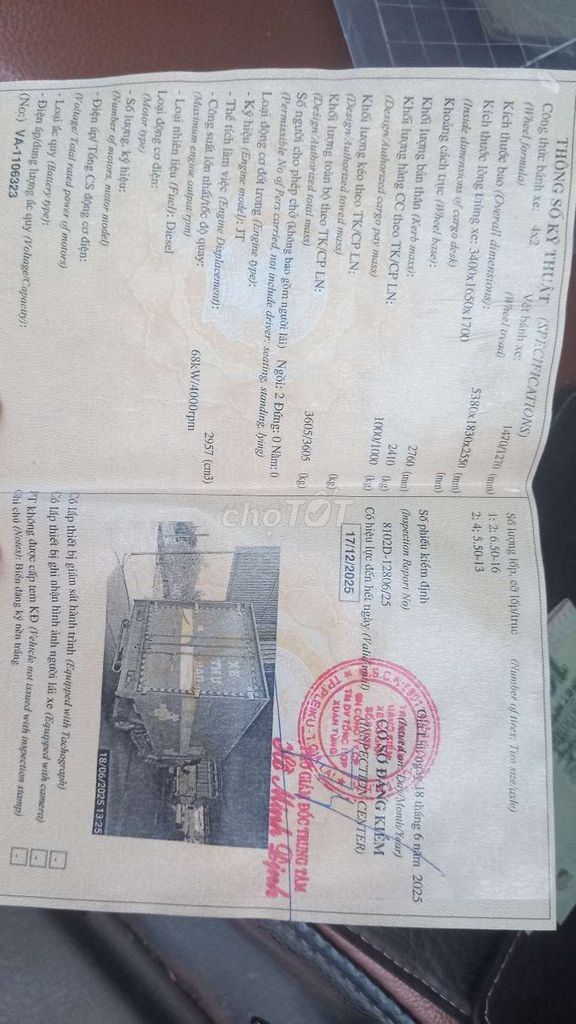 THÔNG SỐ KỸ THUẬT (SPECIFICATIONS)
Công thức bánh xe: 4x2 Vết bánh xe: 1470/1270 (mm)
(Wheel formula) (Wheel tread)
Kích thước bao (Overall dimensions): 5380x1830x2550 (mm)
Kích thước lòng thùng xe: 3400x1650x1700 (mm)
(Inside dimensions of cargo desk)
Khoảng cách trục (Wheel base): 2760 (mm)
Khối lượng bản thân (Kerb mass): 2410 (kg)
Khối lượng hàng CC theo TK/CP LN: 1000/1000 (kg)
(Design/Authorized cargo pay mass)
Khối lượng kéo theo TK/CP LN: (kg)
(Design/Authorized towed mass)
Khối lượng toàn bộ theo TK/CP LN: 3605/3605 (kg)
(Design/Authorized total mass)
Số người cho phép chở (không bao gồm người lái) Ngồi: 2 Đứng: 0 Nằm: 0
(Permissible No of Pers carried, not include driver: seating, standing, lying)
Loại động cơ đốt trong (Engine type):
- Ký hiệu (Engine model): JT
- Thể tích làm việc (Engine Displacement): 2957 (cm3)
- Công suất lớn nhất/tốc độ quay: 68kW/4000rpm
(Maximum engine output/rpm)
- Loại nhiên liệu (Fuel): Diesel
Loại động cơ điện:
(Motor type)
- Số lượng, ký hiệu:
(Number of motors, motor model)
- Điện áp/ Tổng CS động cơ điện:
(Voltage/Total rated power of motors)
- Loại ắc quy (Battery type):
- Điện áp/dung lượng ắc quy (Voltage/Capacity):
(No:) VA-1106223
Số lượng lốp, cỡ lốp/trục (Number of tires; Tire size/axle)
1: 2: 6.50-16
2: 4: 5.50-13
Số phiếu kiểm định
(Inspection Report No)
8102D-12806/25
Có hiệu lực đến hết ngày (Valid until)
17/12/2025
Gia Lai, ngày 18 tháng 6 năm 2025
(Issued on: Day/Month/Year)
CƠ SỞ ĐĂNG KIỂM
(INSPECTION CENTER)
PHÓ GIÁM ĐỐC TRUNG TÂM
Hồ Minh Định
18/06/2025 13:25
Có lắp thiết bị giám sát hành trình (Equipped with Tachograph)
Có lắp thiết bị ghi nhận hình ảnh người lái xe (Equipped with camera)
PT không được cấp tem KĐ (Vehicle not issued with inspection stamp)
Ghi chú (Notes): Biển đăng ký nền trắng
chợTỐT